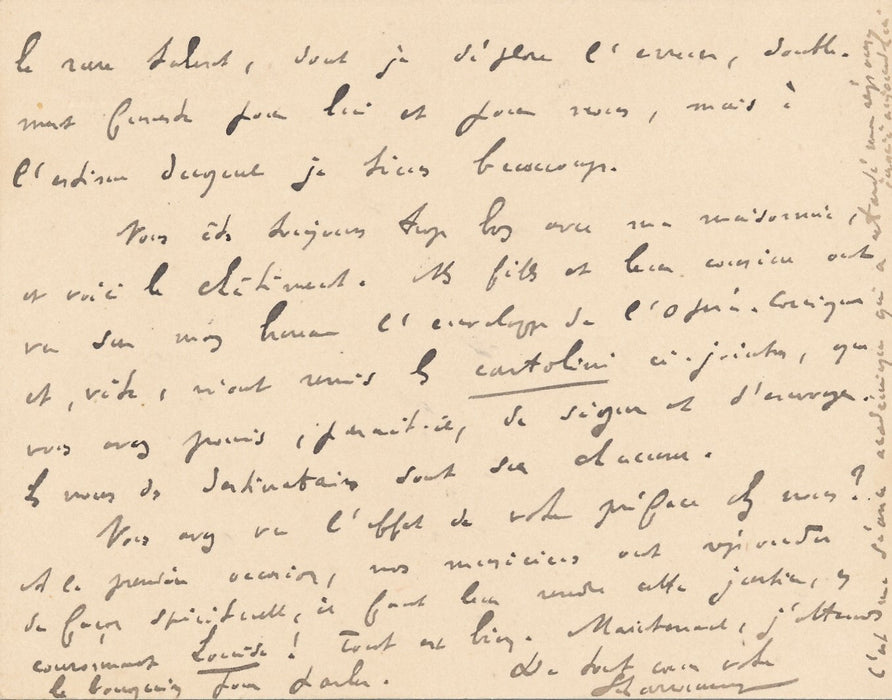 le rare talent, dont je déplore l'erreur, double-
ment funeste pour lui et pour nous, mais à
l'estime duquel je tiens beaucoup.
Vous êtes toujours trop bon avec ma maisonnée,
et voici le châtiment. Mes filles et leur cousine ont
vu sur mon bureau l'enveloppe de l'Opéra-Comique
et, vite, m'ont remis les cartolini ci-jointes, que
vous avez promis, paraît-il, de signer et d'envoyer.
Les noms des destinataires sont sur chacune.
Vous avez vu l'effet de votre préface chez nous?
A la première occasion, nos musiciens ont répondu
de façon spirituelle, il faut leur rendre cette justice, en
couronnant Louise! Tout est bien. Maintenant, j'attends
le bouquin pour parler. De tout cœur votre
c'est une séance académique qui a retardé ma réponse